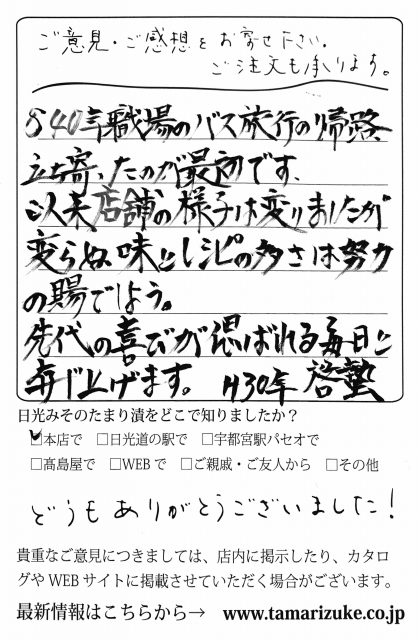 ご意見・ご感想をお寄せ下さい。
ご注文も承ります。
S40年職場のバス旅行の帰路
立ち寄ったのが最初です。
以来店舗の様子は変りましたが
変らぬ味とレシピの多さは努力
の賜でしょう。
先代の喜びが偲ばれる毎日と
存じ上げます。 H30年 啓蟄
日光みそのたまり漬をどこで知りましたか？
☑本店で □日光道の駅で □宇都宮駅パセオで
□髙島屋で □WEBで □ご親戚・ご友人から □その他
どうもありがとうございました！
貴重なご意見につきましては、店内に掲示したり、カタロ
グやWEBサイトに掲載させていただく場合がございます。
最新情報はこちらから→ www.tamarizuke.co.jp